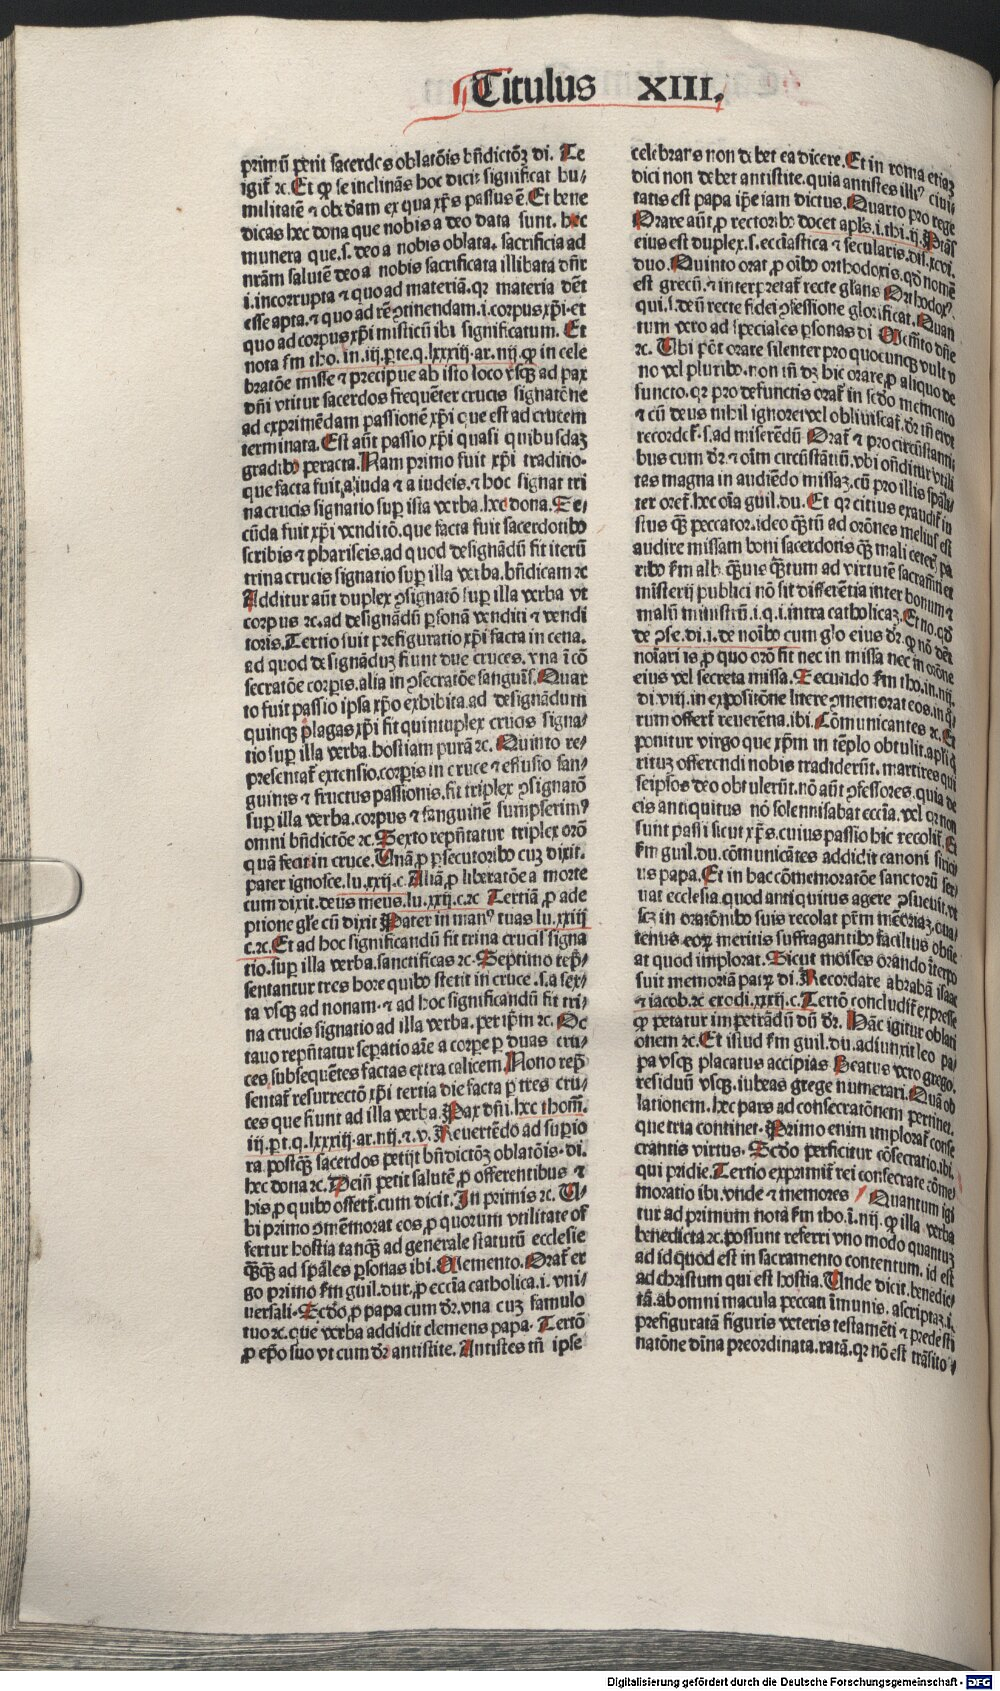 Titulus XIII.
primū petit sacerdos oblatōis bn̄dictōꝫ di. Te
igit̄ ⁊c. Et ꝙ se inclināsꝫ hoc dicit significat hu⸗
militatē ⁊ obedam ex qua xp̄s passus ē. Et bene
dicas hec dona que nobis a deo data sunt. hec
munera que .s. deo a nobis oblata. sacrificia ad
nrām salutē deo a nobis sacrificata illibata dn̄r
.i. incorrupta ⁊ quo ad materiā. qꝛ materia dēt
esse apta. ⁊ quo ad rē ꝯtinendam .i. corpus xp̄i. et
quo ad corpus xp̄i misticū ibi significatum. Et
nota km̄ tho. in .iij. ꝑte. q. lxxxiij. ar. iiij. ꝙ in cele
bratōe misse ⁊ precipue ab isto loco vsqꝫ ad pax
dn̄i vtitur sacerdos frequēter crucis signatōne
ad exprimēdam passionē xp̄i que est ad crucem
terminata. Est aūt passio xp̄i quasi quibusdaꝫ
gradibꝰ peracta. Nam primo fuit xp̄i traditio.
que facta fuit a iuda ⁊ a iudeis. ⁊ hoc signat tri
na crucis signatio suꝑ ista verba. hec dona. Se⸗
cūda fuit xp̄i venditō. que facta fuit sacerdotibꝰ
scribis ⁊ phariseis. ad quod designādū fit iterū
trina crucis signatio suꝑ illa verba. bn̄dicam ⁊c
Additur aūt duplex ꝯsignatō suꝑ illa verba vt
corpus ⁊c. ad designādū ꝑsonā venditi ⁊ vendi
toris. Tertio fuit prefiguratio xp̄i facta in cena.
ad quod designāduꝫ fiunt due cruces. vna i ꝯ̄
secratōe corpis. alia in ꝯsecratōe sanguīs. Quar
to fuit passio ipsa xp̄o exhibita. ad designādum
quinqꝫ plagas xp̄i fit quintuplex crucis signa⸗
tio suꝑ illa verba. hostiam purā ⁊c. Quinto re⸗
presentat̄ extensio. corpis in cruce ⁊ effusio san⸗
guinis ⁊ fructus passionis. fit triplex ꝯsignatō
suꝑ illa verba. corpus ⁊ sanguinē sumpserimꝰ
omni bn̄dictōe ⁊c. Sexto repn̄tatur triplex orō
quā fecit in cruce. Unā ꝓ ꝑsecutoribꝰ cuꝫ dixit.
pater ignosce. lu. xxij. c. Aliā ꝓ liberatōe a morte
cum dixit. deus meus. lu. xxij. c. ⁊c Tertiā ꝓ ade
ptione gl̄e cū dixit Pater in manꝰ tuas lu. xxiij
c. ⁊c. Et ad hoc significandū fit trina crucis signa
tio. suꝑ illa verba. sanctificas ⁊c. Septimo rep̄⸗
sentantur tres hore quibꝰ stetit in cruce .s. a sex⸗
ta vsqꝫ ad nonam. ⁊ ad hoc significandū fit tri⸗
na crucis signatio ad illa verba. per ip̄m ⁊c. Oc
tauo repn̄tatur seꝑatio aīe a corpe ꝑ duas cru⸗
ces subsequētes factas extra calicem. Nono rep̄
sentat̄ resurrectō xp̄i tertia die facta ꝑ tres cru⸗
ces que fiunt ad illa verba. Pax dn̄i. hec thom̄.
iij. ꝑt. q. lxxxiij. ar. iiij. ⁊. v. Reuertēdo ad suꝑio
ra. postqꝫ̄ sacerdos petijt bn̄dictōꝫ oblatōis. di.
hec dona ⁊c. Dein̄ petit salutē ꝓ offerentibus ⁊
his ꝓ quibꝰ offert̄. cum dicit. In primis ⁊c. U⸗
bi primo ꝯmēmorat eos ꝓ quorum vtilitate of
fertur hostia tanqꝫ̄ ad generale statutū ecclesie
qꝫ̄qꝫ ad spāles ꝑsonas ibi. Memento. Orat̄ er
go primo km̄ guil. dur. ꝓ ecciā catholica .i. vni⸗
uersali. Scdō ꝓ papa cum dr̄. vna cuꝫ famulo
tuo ⁊c. que verba addidit clemens papa. Tertō
ꝓ ep̄o suo vt cum dr̄ antistite. Antistes tn̄ ipse
celebrans non debet ea dicere. Et in roma etiaꝫ
dici non debet antistite. quia antistes illiꝰ ciui⸗
tatis est papa ip̄e iam dictus. Quarto pro rege
Orare aūt ꝓ rectoribꝰ docet apl̄s .i. thi. ij. Ptās
eius est duplex .s. eccl̄iastica ⁊ secularis. dist. xcvi.
duo. Quinto orat ꝓ oībꝰ orthodoxis. qd̄ nomē
est grecū. ⁊ interpretat̄ recte glans Orthodoxꝰ.
qui .s. deū recte fidei ꝯfessione glorificat. Quan
tum vero ad speciales ꝑsonas di Memēto dn̄e
⁊c. Ubi pōt orare silenter pro quocunqꝫ vult v̄
no vel pluribꝰ. non tn̄ dꝫ hic orare ꝓ aliquo de
functo. qꝛ pro defunctis orat̄ in scdō memento
⁊ cū deus nihil ignoret vel obliuiscat̄. dr̄ tn̄ eius
recordet̄ .s. ad miserēdū. Orat̄ ⁊ pro circūstanti
bus cum dr̄. ⁊ oīm circūstātiū. vbi on̄ditur vtili
tas magna in audiēdo missaꝫ. cū pro illis spāli⸗
ter oret̄. hec oīa guil. du. Et qꝛ citius exaudit̄ iu
stus qꝫ̄ peccator. ideo qꝫ̄tū ad orōnes melius est
audire missam boni sacerdotis qꝫ̄ mali ceter̄. pa
ribꝰ km̄ alb. qꝫ̄uis qꝫ̄tum ad virtutē sacramēti et
misterij publici nō sit differētia inter bonum ⁊
malū ministrū .i. q. i. intra catholicaꝫ. Et no. qd̄
de ꝯse. di. i. de noībꝰ cum glo eius dr̄. ꝙ nō det
noīari is ꝓ quo orō fit nec in missa nec in orōne
eius vel secreta missa. Secundo km̄ tho. in. iiij.
di. viij. in expositōne litere ꝯmemorat eos. in qͥ⸗
rum offert̄ reuerēna. ibi. Cōmunicantes ⁊c. Et
ponitur virgo que xp̄m in tēplo obtulit. apl̄i q̄
rituꝫ offerendi nobis tradiderūt. martires qui
seipsos deo obtulerūt. nō aūt ꝯfessores. quia de
eis antiquitus nō solennisabat eccīa. vel qꝛ non
sunt passi sicut xp̄s. cuius passio hic recolit̄. Et
km̄ guil. du. cōmunicātes addidit canoni siric
us papa. Et in hac cōmemoratōe sanctorū ser
uat ecclesia quod antiquitus agere ꝯsueuit. vt
scꝫ in oratōnibꝰ suis recolat pr̄m mēoriaꝫ. qua⸗
tenus eoꝝ meritis suffragantibꝰ facilius obtie
at quod implorat. Sicut moises orando īterpo
suit memoriā patꝝ di. Recordare abrahā isaac
⁊ iacob. ⁊c exodi. xxxij. c. Tertō concludit̄ expresse
ꝙ petatur impetrādū dū dr̄. Hāc igitur oblati
onem ⁊c. Et istud km̄ guil. du. adiunxit leo pa⸗
pa vsqꝫ placatus accipias Beatus vero grego.
residuū vsqꝫ. iubeas grege numerari. Quā ob
lationem. hec pars ad consecratōnem pertinet.
que tria continet. Primo enim implorat̄ conse
crantis virtus. Scdō perficitur cōsecratio. ibi.
qui pridie. Tertio exprimit̄ rei consecrate cōme⸗
moratio ibi. vnde ⁊ memores Quantum igi
tur ad primum nota km̄ tho. ī. iiij. ꝙ illa verba
benedicta ⁊c. possunt referri vno modo quantuꝫ
ad id quod est in sacramento contentum. id est
ad christum qui est hostia. Unde dicit. benedic⸗
tā. ab omni macula peccati īmunis. ascriptaꝫ. i.
prefiguratā figuris veteris testamēti ⁊ predesti
natōne dīna preordinata. ratā. qꝛ nō est trāsito⸗
Digitalisierung gefördert durch die Deutsche Forschungsgemeinschaft - DFG